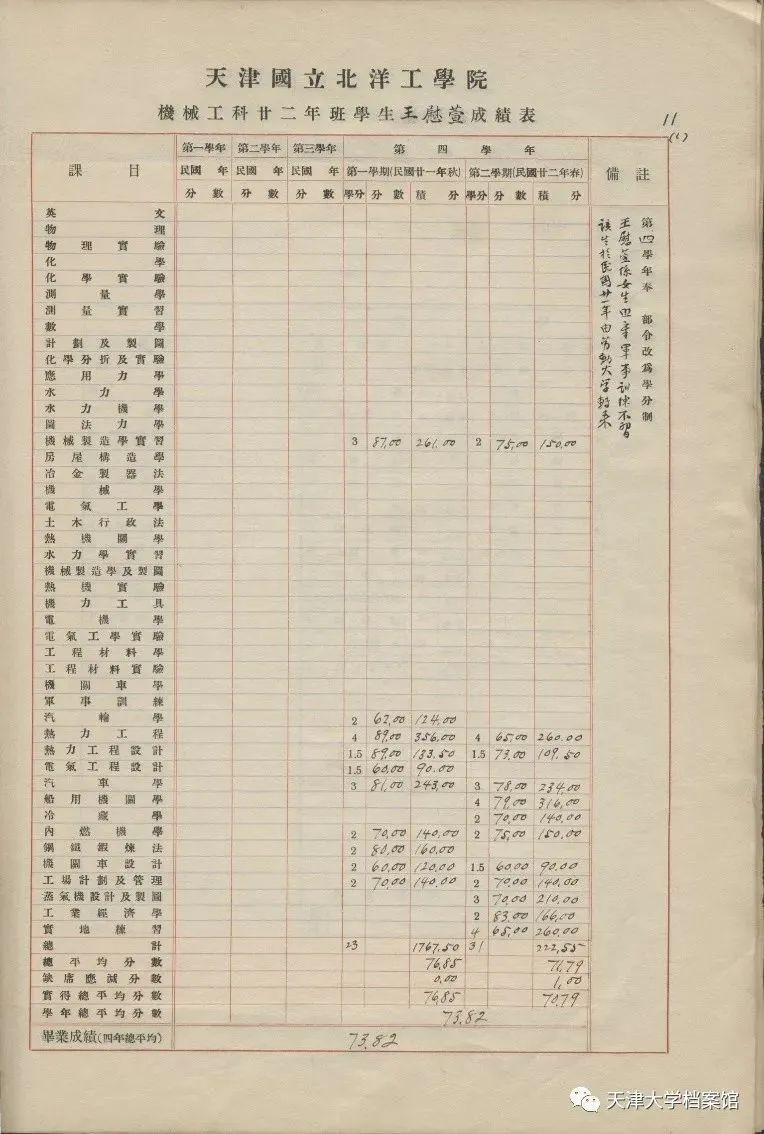 天津國立北洋工學院
機械工科廿二年班學生王慰萱成績表
11
(1)
課目 第一學年 第二學年 第三學年 第四學年 備註
民國 年 民國 年 民國 年 第一學期(民國廿一年秋) 第二學期(民國廿二年春)
分數 分數 分數 學分 分數 積分 學分 分數 積分
英文
物理
物理實驗
化學
化學實驗
測量學
測量實習
數學
計劃及製圖
化學分折及實驗
應用力學
水力學
水力機學
圖法力學
機械製造學實習 3 87.00 261.00 2 75.00 150.00
房屋構造學
冶金製器法
機械學
電氣工學
土木行政法
熱機關學
水力學實習
機械製造學及製圖
熱機實驗
機力工具
電機學
電氣工學實驗
工程材料學
工程材料實驗
機關車學
軍事訓練
汽輪學 2 62.00 124.00
熱力工程 4 89.00 356.00 4 65.00 260.00
熱力工程設計 1.5 89.00 133.50 1.5 73.00 109.50
電氣工程設計 1.5 60.00 90.00
汽車學 3 81.00 243.00 3 78.00 234.00
船用機關學 4 79.00 316.00
冷藏學 2 70.00 140.00
內燃機學 2 70.00 140.00 2 75.00 150.00
鋼鐵鍛煉法 2 80.00 160.00
機關車設計 2 60.00 120.00 1.5 60.00 90.00
工場計劃及管理 2 70.00 140.00 2 70.00 140.00
蒸氣機設計及製圖 3 70.00 210.00
工業經濟學 2 83.00 166.00
實地練習 4 65.00 260.00
總計 23 1767.50 31 222,55
總平均分數 76.85 71.79
缺席應減分數 0.00 1.00
實得總平均分數 76.85 70.79
學年總平均分數 73.82
畢業成績(四年總平均) 73.82
第四學年奉 部令改爲學分制
王慰萱係女生四年軍事訓練不習
該生於民國廿一年由勞動大學轉來
天津大学档案馆